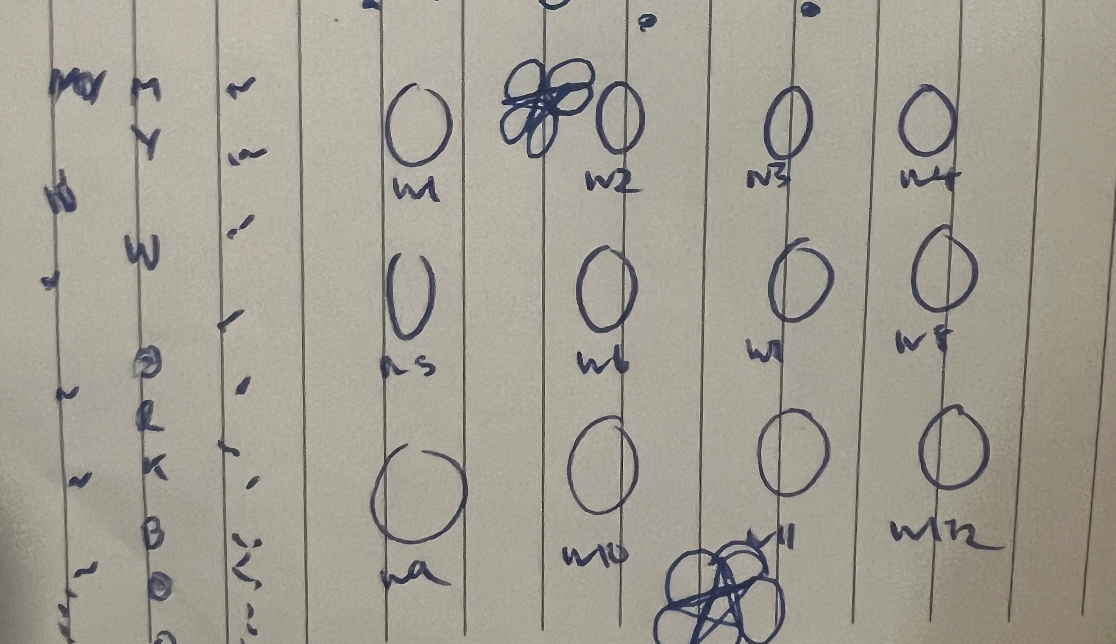 MY WORKBOO
W1 W2 W3 W4
W5 W6 W7 W8
W9 W10 W11 W12